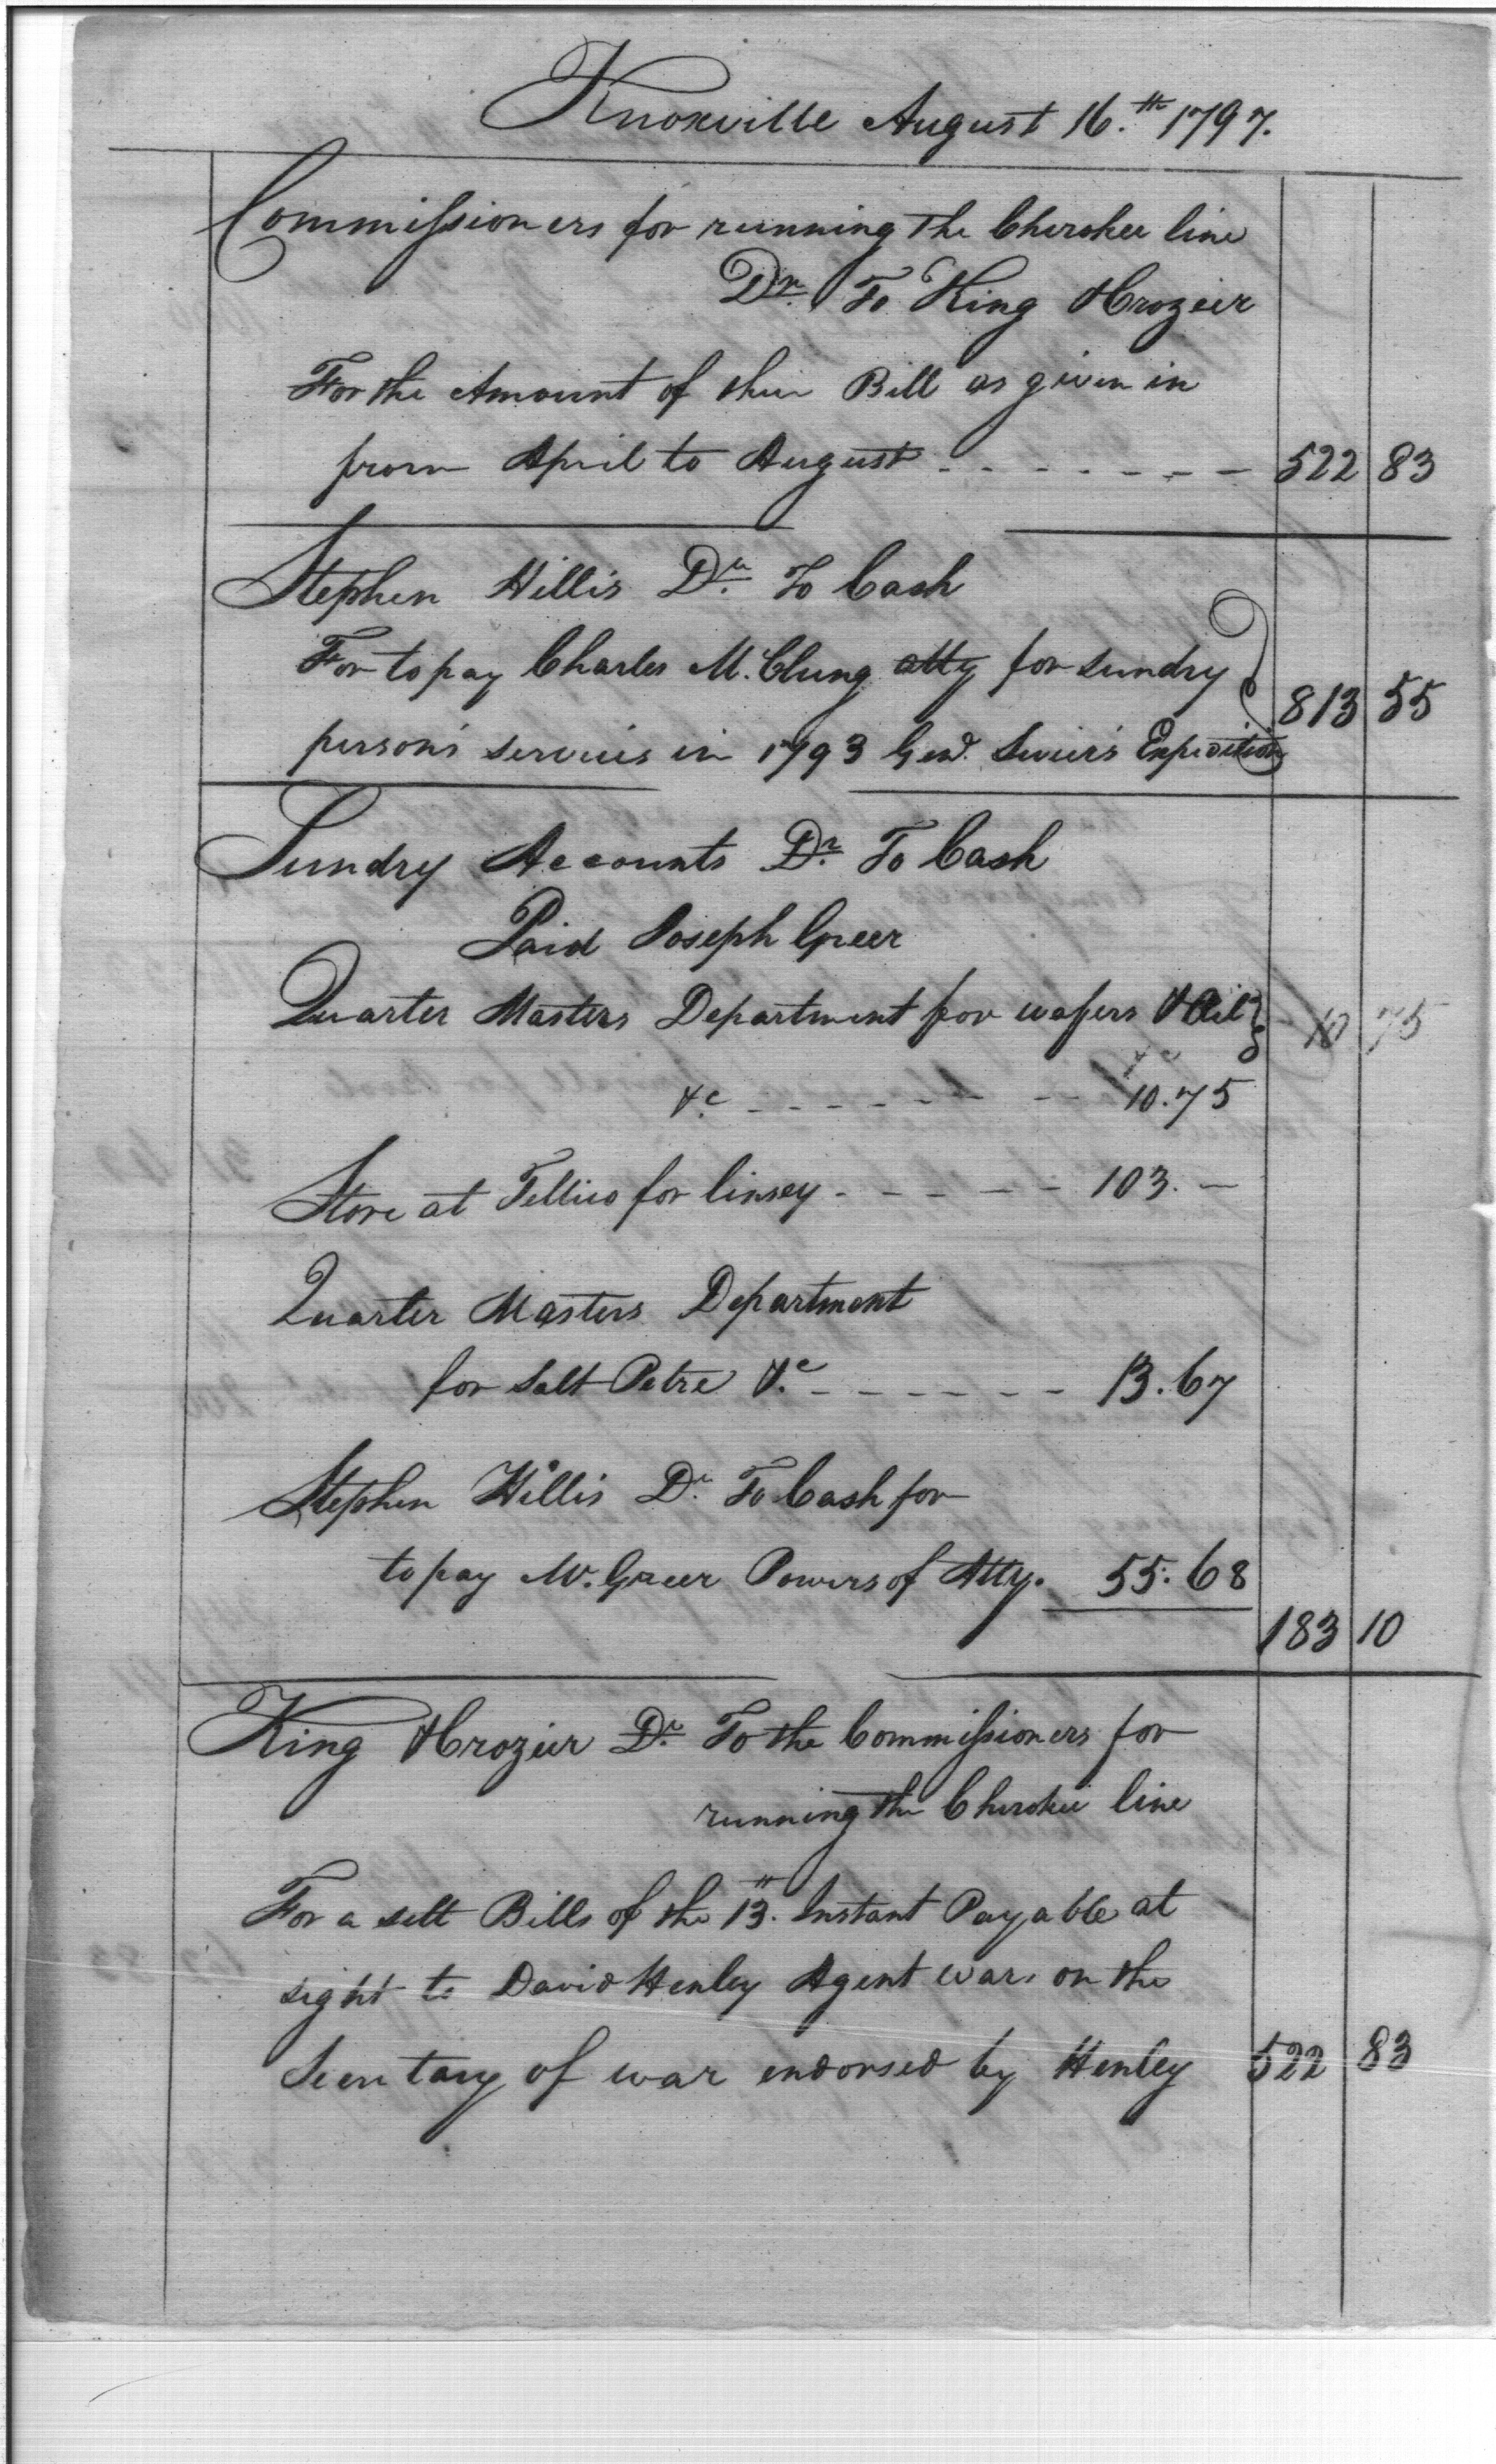 Knoxville August 16.th 1797.
Commissioners for running the Cherokee line
Dr. To King & Crozier
For the Amount of their Bill as given in
from April to August - - - - - - - - 522 83
Stephen Hillis Dr. To Cash
For to pay Charles McClung atty for sundry
person's services in 1793 Genl. Sevier's Expedition 813 55
Sundry Accounts Dr. To Cash
Paid Joseph Greer
Quarter Masters Department for wafers & Oil 10 75
&c
&c - - - - - - - - 10.75
Store at Tellico for linsey - - - - - - 103. —
Quarter Masters Department
for Salt Petre &c - - - - - - - 13.67
Stephen Hillis Dr. To Cash for
to pay Mr. Greer Powers of Atty. 55.68
183 10
King & Crozier Dr. To the Commissioners for
running the Cherokee line
For a sett Bills of the 13th. Instant Payable at
sight to David Henley Agent war. on the
Secretary of war endorsed by Henley 522 83